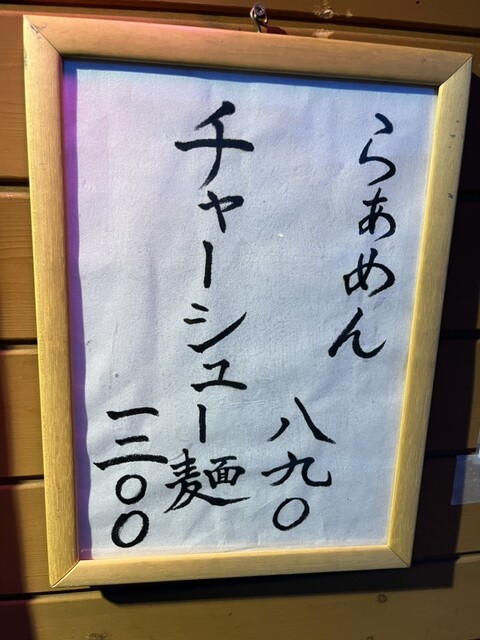 らぁめん
八九〇
チャーシュー麺
一三〇〇